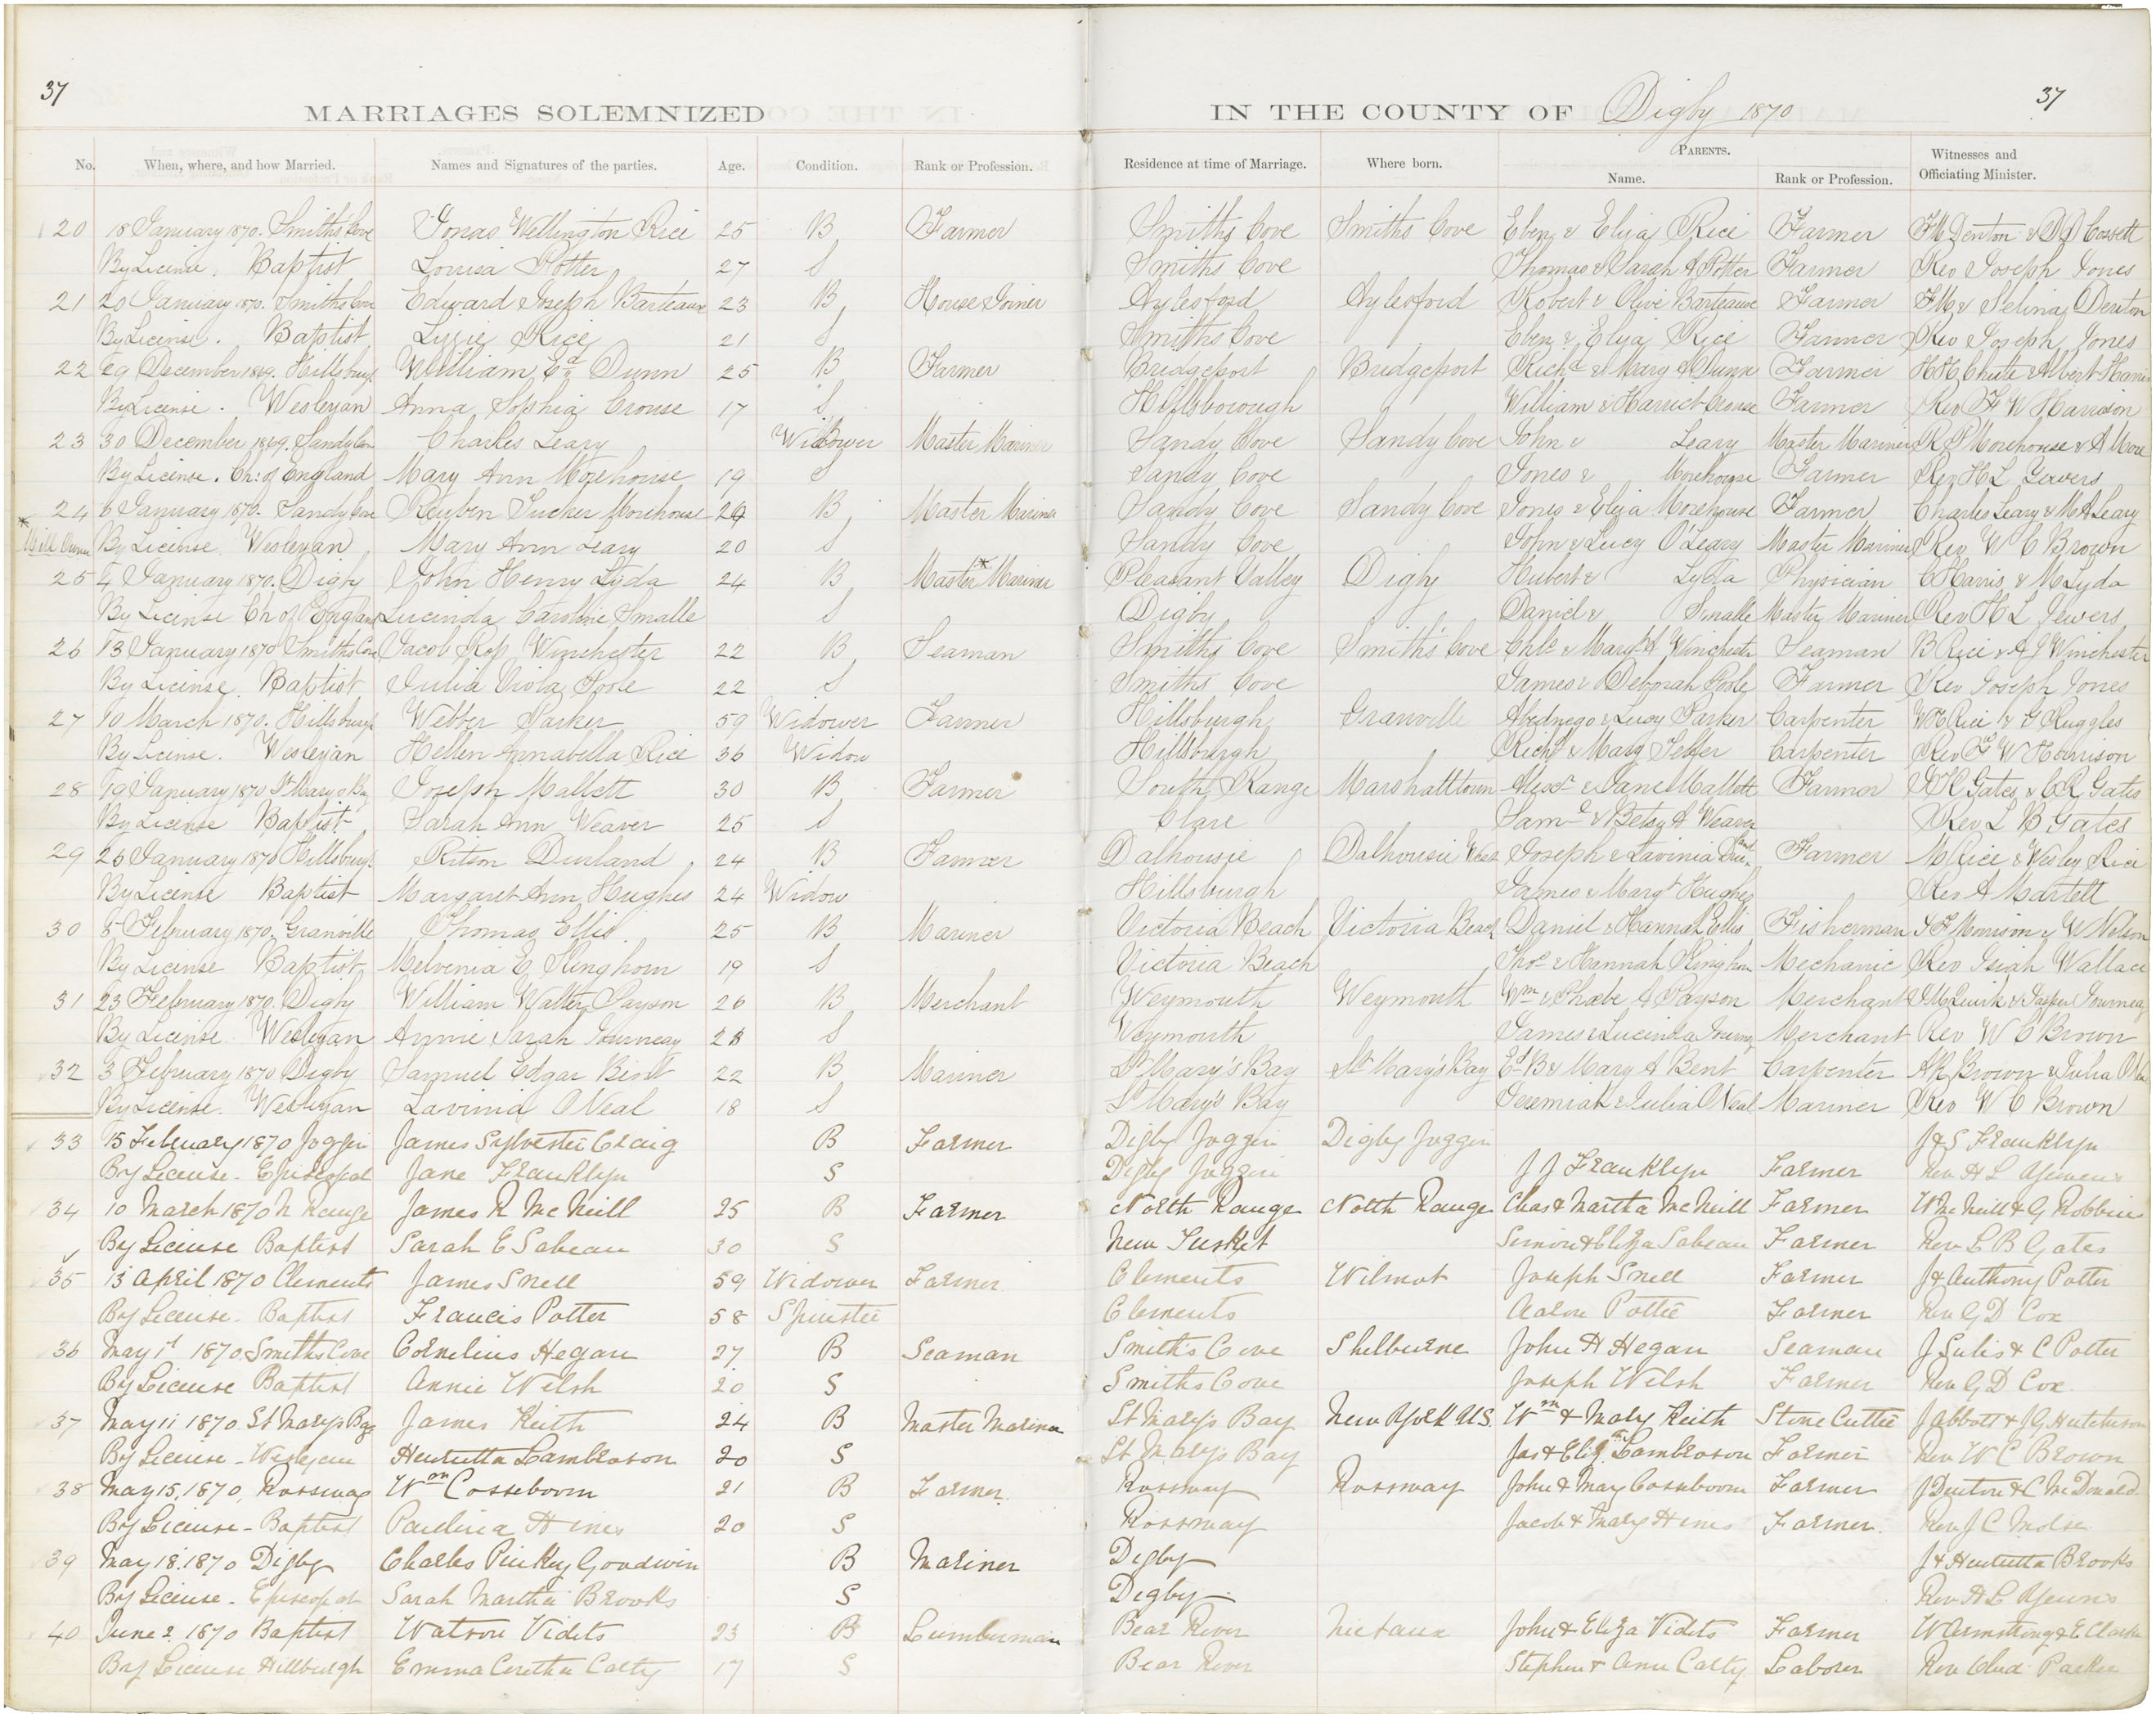 37
37
MARRIAGES SOLEMNIZED IN THE COUNTY OF Digby 1870
No. When, where, and how Married. Names and Signatures of the parties. Age. Condition. Rank or Profession. Residence at time of Marriage. Where born. PARENTS. Name. Rank or Profession. Witnesses and Officiating Minister.
20 18 January 1870. Smiths Cove Jonas Wellington Rice 25 B Farmer Smiths Cove Smiths Cove Eben & Eliza Rice Farmer F M Denton & D D Cossett
By License. Baptist Louisa Potter 27 S Smiths Cove Thomas & Sarah A Potter Farmer Rev Joseph Jones
21 20 January 1870. Smiths Cove Edward Joseph Barteaux 23 B House Joiner Aylesford Aylesford Robert & Olive Barteaux Farmer F M & Selina Denton
By License. Baptist Lizzie Rice 21 S Smiths Cove Eben & Eliza Rice Farmer Rev Joseph Jones
22 29 December 1869. Hillsburgh William Ed Dunn 25 B Farmer Bridgeport Bridgeport Richd & Mary Dunn Farmer H H Chute & Albert Harris
By License. Wesleyan Anna Sophia Crouse 17 S Hillsborough William & Harriet Crouse Farmer Rev F W Harrison
23 30 December 1869. Sandy Cove Charles Leary Widower Master Mariner Sandy Cove Sandy Cove John & Leary Master Mariner R S Morehouse & A More
By License. Ch: of England Mary Ann Morehouse 19 S Sandy Cove Jones & Morehouse Farmer Rev H L Yewers
24 6 January 1870. Sandy Cove Reuben Tucker Morehouse 29 B Master Mariner Sandy Cove Sandy Cove Jones & Eliza Morehouse Farmer Charles Leary & M A Leary
* Mill Owner By License. Wesleyan Mary Ann Leary 20 S Sandy Cove John & Lucy O'Leary Master Mariner Rev W C Brown
25 4 January 1870. Digby John Henry Lyda 24 B Master* Mariner Pleasant Valley Digby Hubert & Lydia Physician C Harris & M Lyda
By License Ch of England Lucinda Caroline Smalle S Digby Daniel & Smalle Master Mariner Rev H L Yewers
26 13 January 1870 Smiths Cove Jacob Ross Winchester 22 B Seaman Smiths Cove Smith's Cove Chls & Mary A Winchester Seaman B Rice & A J Winchester
By License. Baptist Julia Viola Poole 22 S Smiths Cove James & Deborah Poole Farmer Rev Joseph Jones
27 10 March 1870. Hillsburgh Webber Parker 59 Widower Farmer Hillsburgh Granville Abednego & Lucy Parker Carpenter W H Rice & G Ruggles
By License. Wesleyan Hellen Annabella Rice 36 Widow Hillsburgh Richd & Mary Carpenter Rev F W Harrison
28 19 January 1870 St Marys Bay Joseph Mallett 30 B Farmer South Range Marshalltown Alexr & Jane Mallett Farmer Gates & C R Gates
By License Baptist Sarah Ann Weaver 25 S Clare Saml & Betsy A Weaver Rev L B Gates
29 26 January 1870 Hillsburgh Ritson Durland 24 B Farmer Dalhousie Dalhousie West Joseph & Lavinia Durland Farmer M Rice & Wesley Rice
By License Baptist Margaret Ann Hughes 24 Widow Hillsburgh James & Margt Hughes Rev A Martell
30 5 February 1870. Granville Thomas Ellis 25 B Mariner Victoria Beach Victoria Beach Daniel & Hannah Ellis Fisherman Morrison & W Nelson
By License Baptist Melvenia E Kinghorn 19 S Victoria Beach Thos & Hannah Kinghorn Mechanic Rev Isiah Wallace
31 23 February 1870. Digby William Walter Payson 26 B Merchant Weymouth Weymouth Wm & Phoebe A Payson Merchant Quirk & Jasper Journeay
By License. Wesleyan Annie Sarah Journeay 21 S Weymouth James & Lucinda Journeay Merchant Rev W C Brown
32 3 February 1870 Digby Samuel Edgar Bent 22 B Mariner St Mary's Bay St Mary's Bay Ed B & Mary A Bent Carpenter Brown & Julia O'Neal
By License. Wesleyan Lavinia O Neal 18 S St Mary's Bay Jeremiah & Julia O Neal Mariner Rev W C Brown
33 15 February 1870 Joggin James Sylvester Craig B Farmer Digby Joggin Digby Joggin J & S Franklyn
By License. Episcopal Jane Franklyn S Digby Joggin J J Franklyn Farmer Rev H L Yewens
34 10 March 1870 N Range James R McNeill 25 B Farmer North Range North Range Chas & Martha McNeill Farmer W McNeill & G Robbins
By License Baptist Sarah E Sabean 30 S New Tusket Simon & Eliza Sabean Farmer Rev L B Gates
35 13 April 1870 Clements James Snell 59 Widower Farmer Clements Wilmot Joseph Snell Farmer J & Anthony Potter
By License. Baptist Francis Potter 58 Spinster Clements Aaron Potter Farmer Rev G D Cox
36 May 1st 1870. Smiths Cove Cornelius Hegan 27 B Seaman Smith's Cove Shelburne John A Hegan Seaman J Sulis & C Potter
By License Baptist Annie Welsh 20 S Smiths Cove Joseph Welsh Farmer Rev G D Cox.
37 May 11 1870. St Marys Bay James Keith 24 B Master Mariner St Marys Bay New York U.S. Wm & Mary Keith Stone Cutter J Abbott & J G Hutchinson
By License - Wesleyan Henrietta Lambertson 20 S St Marys Bay Jas & Elizth Lambertson Farmer Rev W C Brown
38 May 15, 1870, Rossway Wm Cosseboom 21 B Farmer Rossway Rossway John & Mary Cosseboom Farmer J Denton & C McDonald
By License - Baptist Paulina Hines 20 S Rossway Jacob & Mary Hines Farmer. Rev J C Morse
39 May 18. 1870 Digby Charles Pinkey Goodwin B Mariner Digby J & Henrietta Brooks
By License. Episcopal Sarah Martha Brooks S Digby Rev H L Yewens
40 June 2. 1870 Baptist Watson Vidits 23 B Lumberman Bear River Nictaux John & Eliza Vidits Farmer W Armstrong & E Clarke
By License Hillburgh Emma Caretha Carty 17 S Bear River Stephen & Ann Carty Laborer Rev Obed Parker